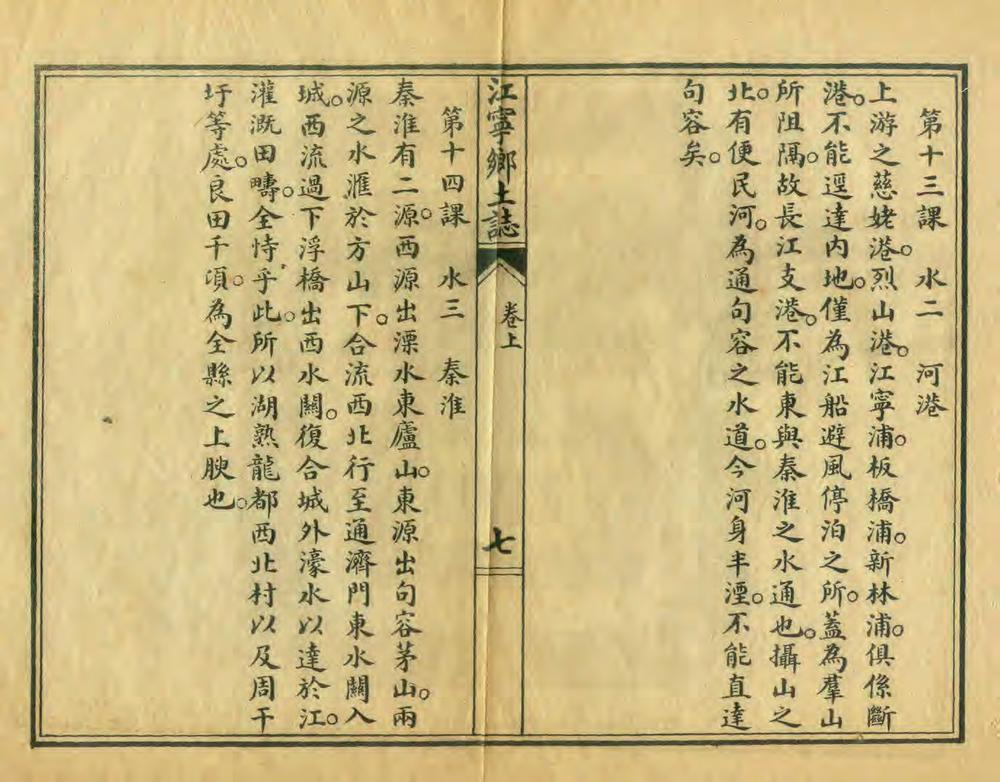 第十三課 水二 河港
上游之慈姥港。烈山港。江寧浦。板橋浦。新林浦。俱係斷
港。不能逕達內地。僅為江船避風停泊之所。蓋為羣山
所阻隔。故長江支港。不能東與秦淮之水通也。攝山之
北。有便民河。為通句容之水道。今河身半湮。不能直達
句容矣。
江寧鄉土誌 卷上 七
第十四課 水三 秦淮
秦淮有二源。西源出溧水東廬山。東源出句容茅山。兩
源之水滙於方山下。合流西北行至通濟門東水關入
城。西流過下浮橋出西水關。復合城外濠水以達於江。
灌溉田疇。全恃乎此。所以湖熟龍都西北村以及周干
圩等處。良田千頃。為全縣之上腴也。